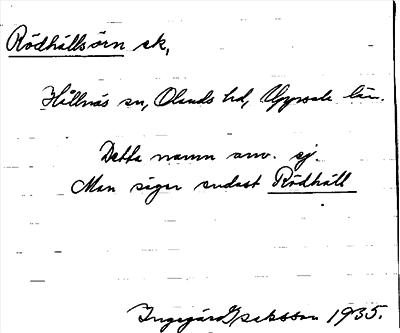 Rödhällsörn sk,
Hållnäs sn, Olands hd, Uppsala län.
Detta namn anv. ej.
Man säger endast Rödhäll
Ingegärd Isaksson 1935.